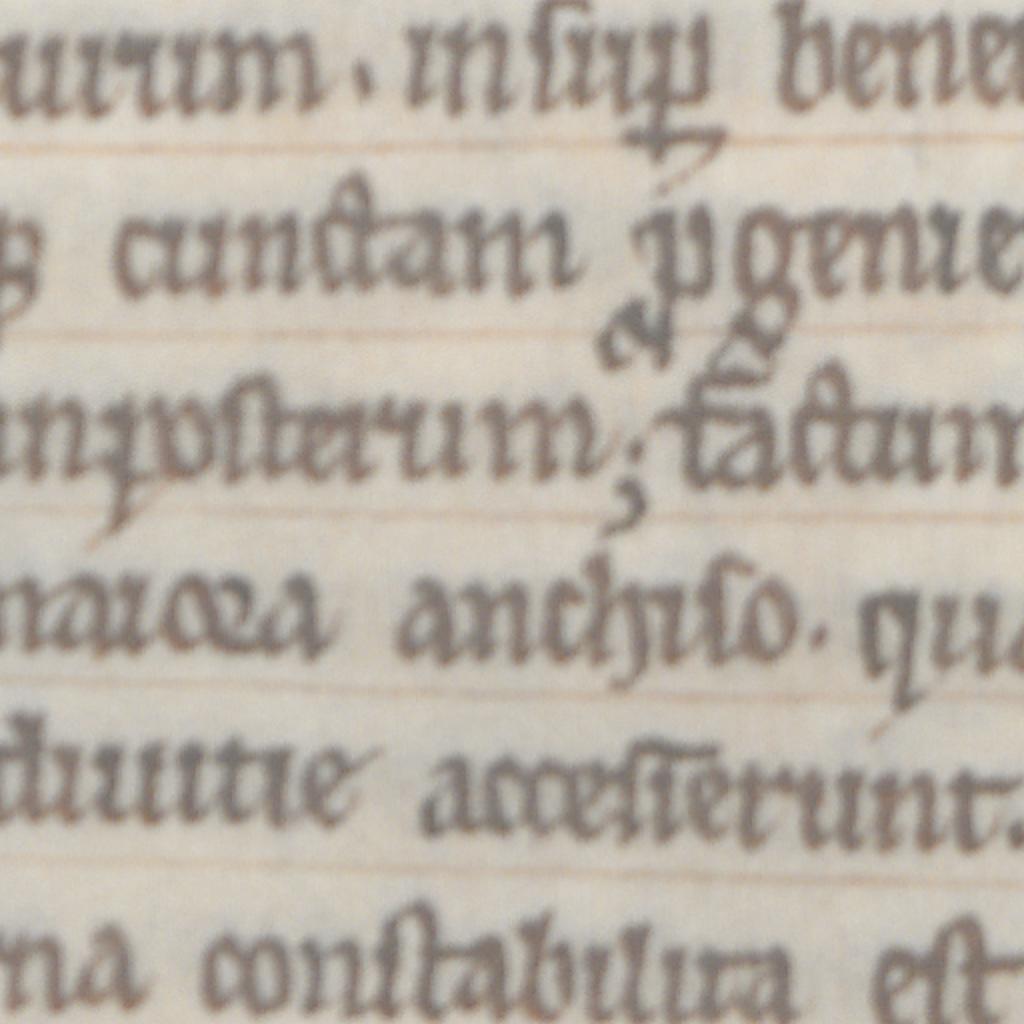 urum. insup bene
cunctam pgenie
inposterum; factum
maiora anchiso. qua
diuitie accesserunt.
na constabilita est